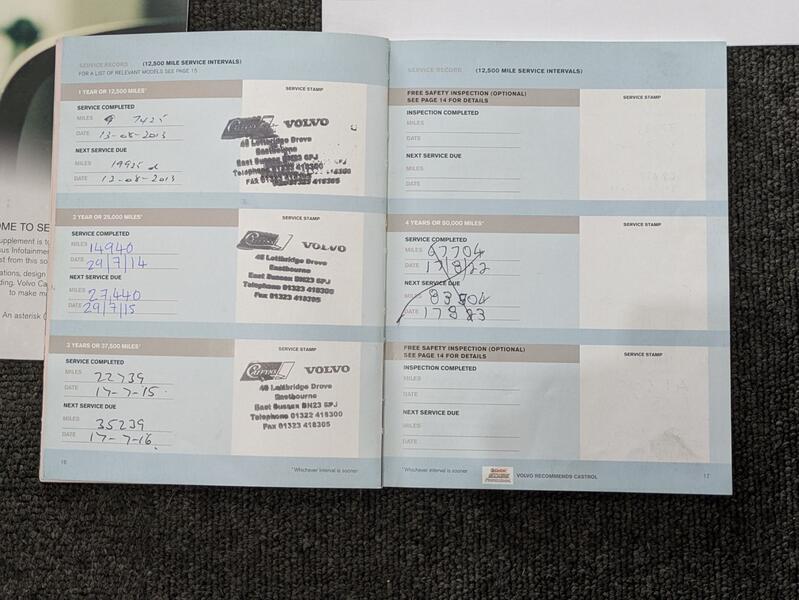 SERVICE RECORD (12,500 MILE SERVICE INTERVALS)
FOR A LIST OF RELEVANT MODELS SEE PAGE 15
1 YEAR OR 12,500 MILES*
SERVICE STAMP
SERVICE COMPLETED
MILES 7425
DATE 13-08-2013
NEXT SERVICE DUE
MILES 19925
DATE 12-08-2013
VOLVO
48 Lottbridge Drove
Eastbourne
East Sussex BN23 6PJ
Telephone 01323 418300
Fax 01323 418305
2 YEAR OR 25,000 MILES*
SERVICE STAMP
SERVICE COMPLETED
MILES 14940
DATE 29/7/14
NEXT SERVICE DUE
MILES 27,440
DATE 29/7/15
CAFFYNS VOLVO
48 Lottbridge Drove
Eastbourne
East Sussex BN23 6PJ
Telephone 01323 418300
Fax 01323 418305
3 YEARS OR 37,500 MILES*
SERVICE STAMP
SERVICE COMPLETED
MILES 22739
DATE 17-7-15
NEXT SERVICE DUE
MILES 35239
DATE 17-7-16
CAFFYNS VOLVO
48 Lottbridge Drove
Eastbourne
East Sussex BN23 6PJ
Telephone 01323 418300
Fax 01323 418305
16
*Whichever interval is sooner
SERVICE RECORD (12,500 MILE SERVICE INTERVALS)
FREE SAFETY INSPECTION (OPTIONAL)
SEE PAGE 14 FOR DETAILS
SERVICE STAMP
INSPECTION COMPLETED
MILES
DATE
NEXT SERVICE DUE
MILES
DATE
4 YEARS OR 50,000 MILES*
SERVICE STAMP
SERVICE COMPLETED
MILES 67704
DATE 17/8/22
NEXT SERVICE DUE
MILES
DATE
FREE SAFETY INSPECTION (OPTIONAL)
SEE PAGE 14 FOR DETAILS
SERVICE STAMP
INSPECTION COMPLETED
MILES
DATE
NEXT SERVICE DUE
MILES
DATE
*Whichever interval is sooner
Castrol
VOLVO RECOMMENDS CASTROL
17
OME TO SE
upplement is to
sus Infotainmen
st from this so
ations, design
ding. Volvo Ca
to make m
An asterisk (